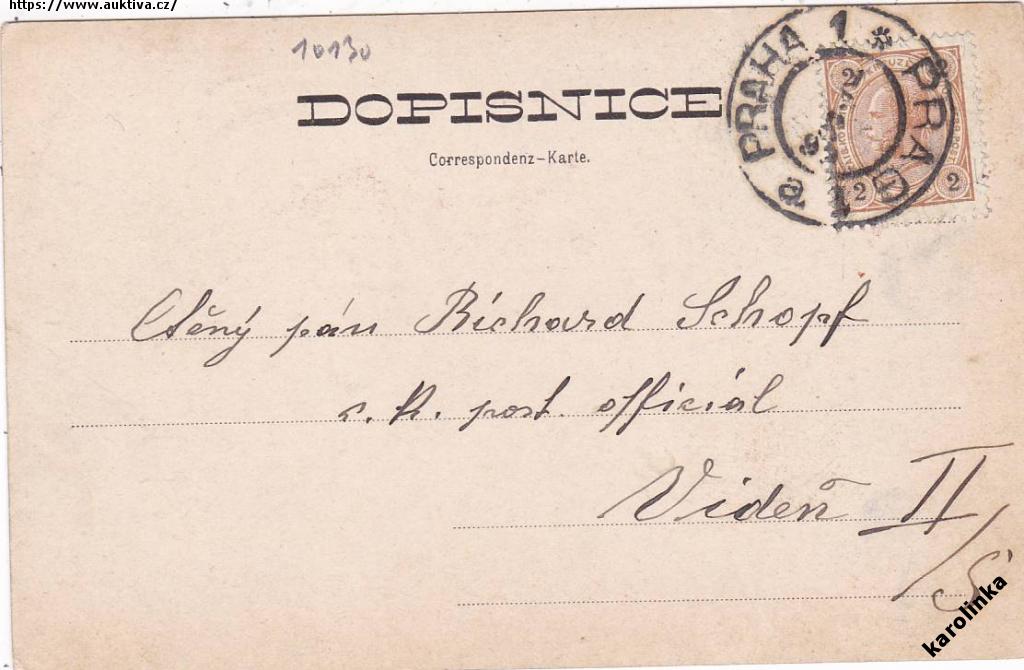 https://www.auktiva.cz/
10130
DOPISNICE
Correspondenz-Karte.
PRAHA 1 * PRAG
2
2 2
Ctěný pán Richard Schopf
c. k. post. officiál
Videň II/5
karolinka